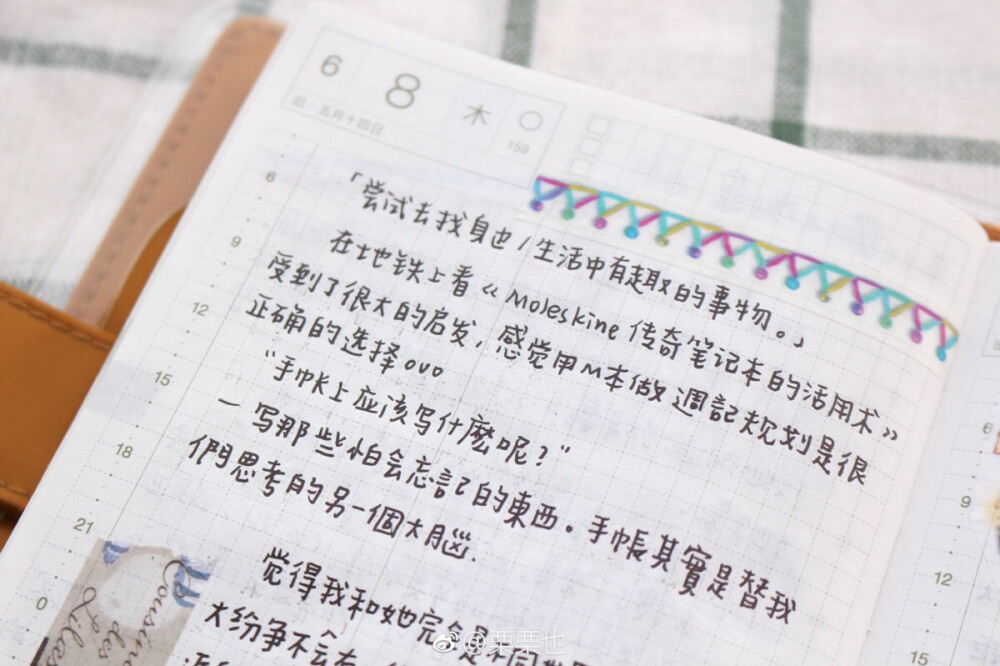 6 8 木
旧 五月十四日 159
6
「尝试去找身边/生活中有趣取的事物。」
9
在地铁上看《Moleskine 传奇笔记本的活用术》
受到了很大的启发,感觉用M本做週記规划是很
12
正确的选择ovo
15
"手帐上应该写什麼呢?"
一写那些怕会忘記的東西。手帳其實是替我
18
們思考的另一個大脑.
21
觉得我和她完全是不同
0
大纷争不会有
cousin
des
Lilas
6
9
12
15
@栗栗也